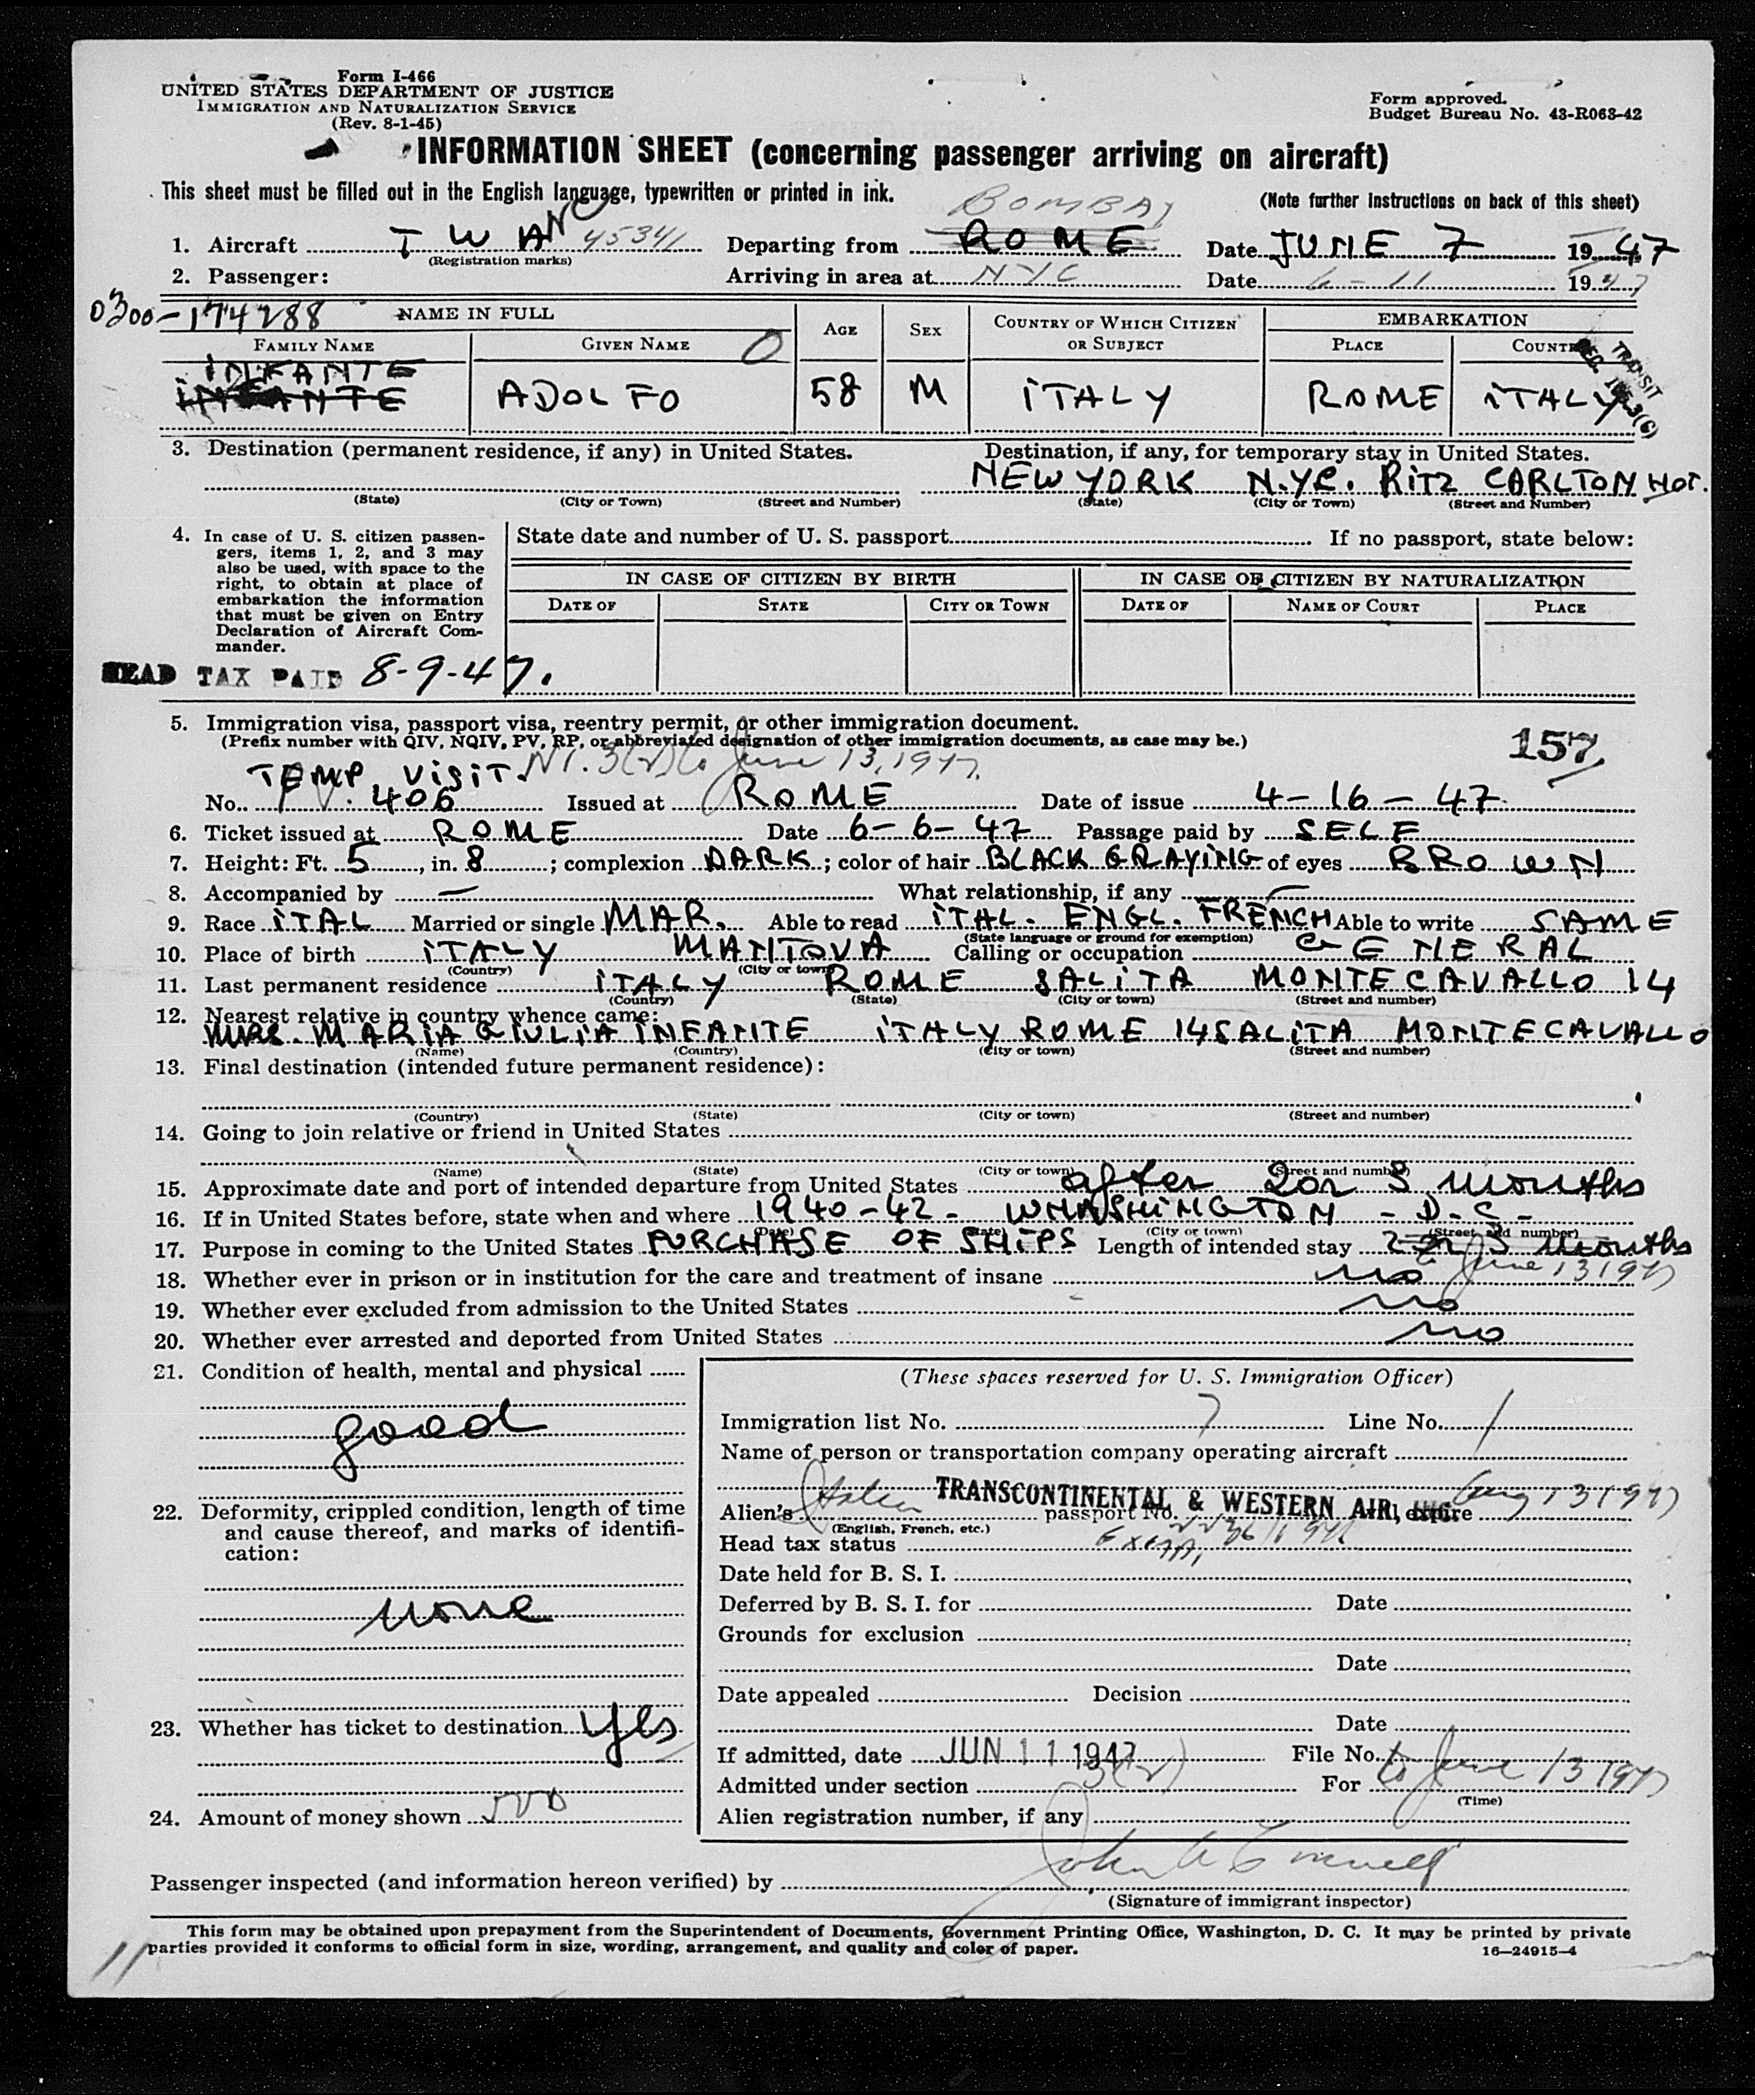 Form I-466
UNITED STATES DEPARTMENT OF JUSTICE
IMMIGRATION AND NATURALIZATION SERVICE
(Rev. 8-1-45)
Form approved.
Budget Bureau No. 43-R063-42
INFORMATION SHEET (concerning passenger arriving on aircraft)
This sheet must be filled out in the English language, typewritten or printed in ink.
(Note further instructions on back of this sheet)
BOMBAY
1. Aircraft T W A NC 45341 Departing from ROME Date JUNE 7 1947
(Registration marks)
2. Passenger: Arriving in area at NYC Date 6-11 1947
0300-174288 NAME IN FULL AGE SEX COUNTRY OF WHICH CITIZEN OR SUBJECT EMBARKATION
FAMILY NAME GIVEN NAME O PLACE COUNTRY
TRANSIT
INFANTE
INFANTE ADOLFO 58 M ITALY ROME ITALY
3. Destination (permanent residence, if any) in United States. Destination, if any, for temporary stay in United States.
NEW YORK N.YC. RITZ CARLTON HOT.
(State) (City or Town) (Street and Number) (State) (City or Town) (Street and Number)
4. In case of U. S. citizen passengers, items 1, 2, and 3 may also be used, with space to the right, to obtain at place of embarkation the information that must be given on Entry Declaration of Aircraft Commander.
State date and number of U. S. passport If no passport, state below:
IN CASE OF CITIZEN BY BIRTH IN CASE OF CITIZEN BY NATURALIZATION
DATE OF STATE CITY OR TOWN DATE OF NAME OF COURT PLACE
HEAD TAX PAID 8-9-47.
5. Immigration visa, passport visa, reentry permit, or other immigration document.
(Prefix number with QIV, NQIV, PV, RP, or abbreviated designation of other immigration documents, as case may be.)
157
TEMP. VISIT. 3(2) to June 13, 1947.
No. PV. 406 Issued at ROME Date of issue 4-16-47
6. Ticket issued at ROME Date 6-6-47 Passage paid by SELF
7. Height: Ft. 5, in. 8; complexion DARK; color of hair BLACK GRAYING of eyes BROWN
8. Accompanied by — What relationship, if any —
9. Race ITAL Married or single MAR. Able to read ITAL. ENGL. FRENCH Able to write SAME
(State language or ground for exemption)
10. Place of birth ITALY MANTOVA Calling or occupation GENERAL
(Country) (City or town)
11. Last permanent residence ITALY ROME SALITA MONTECAVALLO 14
(Country) (State) (City or town) (Street and number)
12. Nearest relative in country whence came:
MRS. MARIA GIULIA INFANTE ITALY ROME 14 SALITA MONTECAVALLO
(Name) (Country) (City or town) (Street and number)
13. Final destination (intended future permanent residence):
(Country) (State) (City or town) (Street and number)
14. Going to join relative or friend in United States
(Name) (State) (City or town) (Street and number)
15. Approximate date and port of intended departure from United States after 2 or 3 months
16. If in United States before, state when and where 1940-42- WHASHINGTON - D.C.-
(Date) (State) (City or town) (Street and number)
17. Purpose in coming to the United States PURCHASE OF SHIPS Length of intended stay 2 or 3 months
to June 13 1947
18. Whether ever in prison or in institution for the care and treatment of insane no
19. Whether ever excluded from admission to the United States no
20. Whether ever arrested and deported from United States no
21. Condition of health, mental and physical
good
22. Deformity, crippled condition, length of time and cause thereof, and marks of identification:
none
23. Whether has ticket to destination yes
24. Amount of money shown 500
(These spaces reserved for U. S. Immigration Officer)
Immigration list No. 7 Line No. 1
Name of person or transportation company operating aircraft
TRANSCONTINENTAL & WESTERN AIR, INC.
Alien's Italian passport No. will expire Aug 13 1947
(English, French, etc.)
Head tax status Exem.
Date held for B. S. I.
Deferred by B. S. I. for Date
Grounds for exclusion
Date
Date appealed Decision
Date
If admitted, date JUN 11 1947 File No.
Admitted under section 3(2) For to June 13 1947
(Time)
Alien registration number, if any
Passenger inspected (and information hereon verified) by John
(Signature of immigrant inspector)
This form may be obtained upon prepayment from the Superintendent of Documents, Government Printing Office, Washington, D. C. It may be printed by private
parties provided it conforms to official form in size, wording, arrangement, and quality and color of paper. 16—24915-4
11